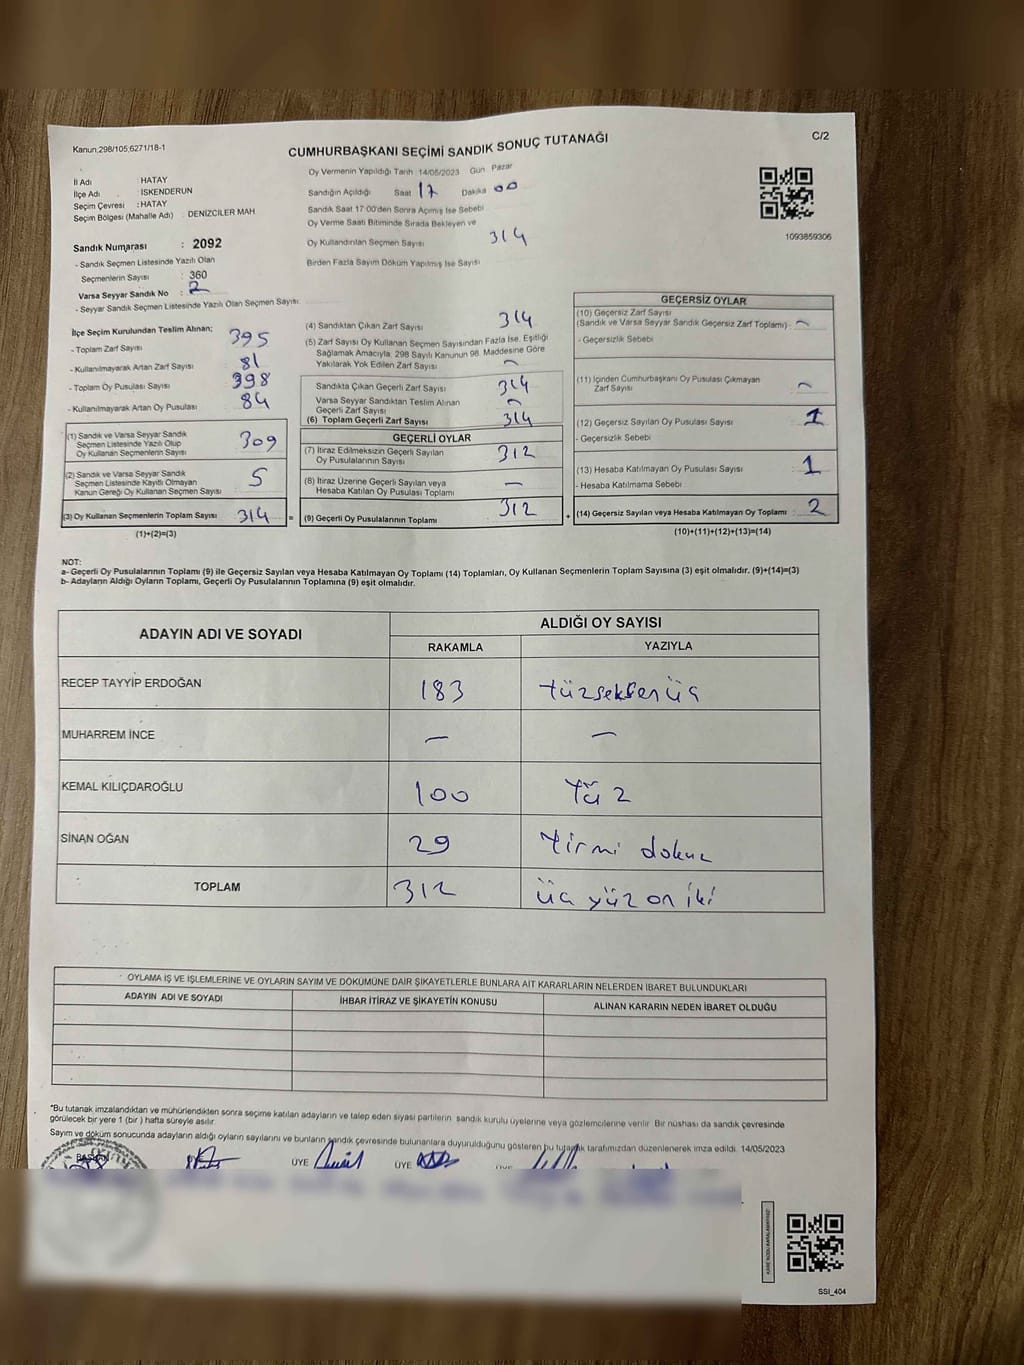 Kanun,298/105,6271/18-1
C/2
CUMHURBAŞKANI SEÇİMİ SANDIK SONUÇ TUTANAĞI
İl Adı : HATAY
İlçe Adı : İSKENDERUN
Seçim Çevresi : HATAY
Seçim Bölgesi (Mahalle Adı) : DENİZCİLER MAH
Sandık Numarası : 2092
- Sandık Seçmen Listesinde Yazılı Olan
Seçmenlerin Sayısı : 360
Varsa Seyyar Sandık No : 2
- Seyyar Sandık Seçmen Listesinde Yazılı Olan Seçmen Sayısı:
Oy Vermenin Yapıldığı Tarih :14/05/2023 Gün Pazar
Sandığın Açıldığı Saat 17 Dakika 00
Sandık Saat 17:00'den Sonra Açmış İse Sebebi
Oy Verme Saati Bitiminde Sırada Bekleyen ve
Oy Kullandırılan Seçmen Sayısı 314
Birden Fazla Sayım Döküm Yapılmış İse Sayısı
1093859306
İlçe Seçim Kurulundan Teslim Alınan;
- Toplam Zarf Sayısı 395
- Kullanılmayarak Artan Zarf Sayısı 81
- Toplam Oy Pusulası Sayısı 398
- Kullanılmayarak Artan Oy Pusulası 84
(1) Sandık ve Varsa Seyyar Sandık
Seçmen Listesinde Yazılı Olup
Oy Kullanan Seçmenlerin Sayısı 309
(2) Sandık ve Varsa Seyyar Sandık
Seçmen Listesinde Kayıtlı Olmayan
Kanun Gereği Oy Kullanan Seçmen Sayısı 5
(3) Oy Kullanan Seçmenlerin Toplam Sayısı 314 =
(1)+(2)=(3)
(4) Sandıktan Çıkan Zarf Sayısı 314
(5) Zarf Sayısı Oy Kullanan Seçmen Sayısından Fazla İse, Eşitliği
Sağlamak Amacıyla, 298 Sayılı Kanunun 98. Maddesine Göre
Yakılarak Yok Edilen Zarf Sayısı -
Sandıkta Çıkan Geçerli Zarf Sayısı 314
Varsa Seyyar Sandıktan Teslim Alınan
Geçerli Zarf Sayısı -
(6) Toplam Geçerli Zarf Sayısı 314
GEÇERLİ OYLAR
(7) İtiraz Edilmeksizin Geçerli Sayılan
Oy Pusulalarının Sayısı 312
(8) İtiraz Üzerine Geçerli Sayılan veya
Hesaba Katılan Oy Pusulası Toplamı -
(9) Geçerli Oy Pusulalarının Toplamı 312 +
GEÇERSİZ OYLAR
(10) Geçersiz Zarf Sayısı
(Sandık ve Varsa Seyyar Sandık Geçersiz Zarf Toplamı) -
- Geçersizlik Sebebi
(11) İçinden Cumhurbaşkanı Oy Pusulası Çıkmayan
Zarf Sayısı -
(12) Geçersiz Sayılan Oy Pusulası Sayısı 1
- Geçersizlik Sebebi
(13) Hesaba Katılmayan Oy Pusulası Sayısı 1
- Hesaba Katılmama Sebebi
(14) Geçersiz Sayılan veya Hesaba Katılmayan Oy Toplamı 2
(10)+(11)+(12)+(13)=(14)
NOT:
a- Geçerli Oy Pusulalarının Toplamı (9) ile Geçersiz Sayılan veya Hesaba Katılmayan Oy Toplamı (14) Toplamları, Oy Kullanan Seçmenlerin Toplam Sayısına (3) eşit olmalıdır. (9)+(14)=(3)
b- Adayların Aldığı Oyların Toplamı, Geçerli Oy Pusulalarının Toplamına (9) eşit olmalıdır.
ADAYIN ADI VE SOYADI ALDIĞI OY SAYISI
RAKAMLA YAZIYLA
RECEP TAYYİP ERDOĞAN 183 Yüzseksenüç
MUHARREM İNCE - -
KEMAL KILIÇDAROĞLU 100 Yüz
SİNAN OĞAN 29 Yirmi dokuz
TOPLAM 312 üç yüz on iki
OYLAMA İŞ VE İŞLEMLERİNE VE OYLARIN SAYIM VE DÖKÜMÜNE DAİR ŞİKAYETLERLE BUNLARA AİT KARARLARIN NELERDEN İBARET BULUNDUKLARI
ADAYIN ADI VE SOYADI İHBAR İTİRAZ VE ŞİKAYETİN KONUSU ALINAN KARARIN NEDEN İBARET OLDUĞU
*Bu tutanak imzalandıktan ve mühürlendikten sonra seçime katılan adayların ve talep eden siyasi partilerin sandık kurulu üyelerine veya gözlemcilerine verilir. Bir nüshası da sandık çevresinde
görülecek bir yere 1 (bir) hafta süreyle asılır.
Sayım ve döküm sonucunda adayların aldığı oyların sayılarını ve bunların sandık çevresinde bulunanlara duyurulduğunu gösteren bu tutanak tarafımızdan düzenlenerek imza edildi. 14/05/2023
BAŞKAN ÜYE ÜYE
SSİ_404